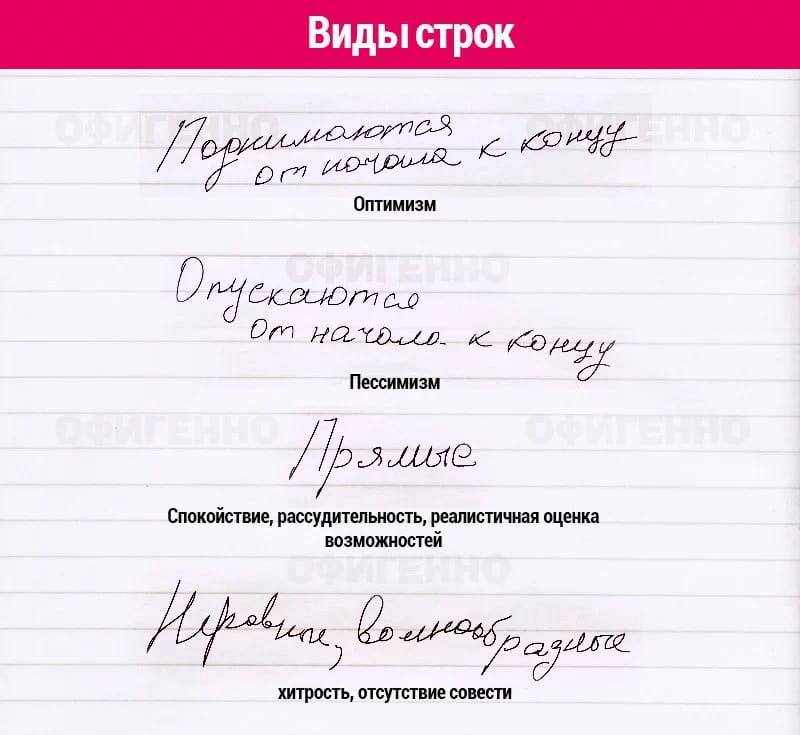 Виды строк
ОФИГЕННО
ОФИГЕННО
Поднимаются
от начала к концу
Оптимизм
ОФИГЕННО
Опускаются
от начала к концу
Пессимизм
ОФИГЕННО
ОФИГЕННО
Прямые
Спокойствие, рассудительность, реалистичная оценка
возможностей
ОФИГЕННО
Неровные, волнообразные
хитрость, отсутствие совести